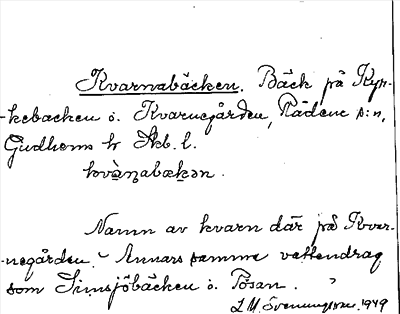 Kvarnabäcken. Bäck på Kyr-
-kebacken o. Kvarnegården, Rådene s:n,
Gudhems hr Skb. l.
kvàṇabækən.
Namn av kvarn där på Kvar-
-negården. Annars samma vattendrag
som Simsjöbäcken o. Pösan.
L. M. Svenungsson. 1949